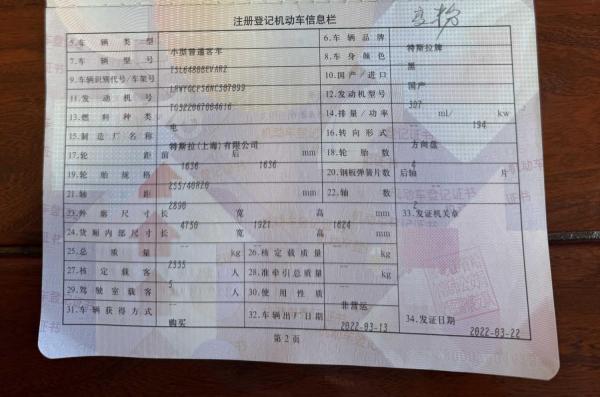 注册登记机动车信息栏
5.车辆类型 小型普通客车 6.车辆品牌 特斯拉牌
7.车辆型号 8.车身颜色 黑
9.车辆识别代号/车架号 10.国产/进口 国产
11.发动机号 12.发动机型号
13.燃料种类 电 14.排量/功率 ml/ 194 kw
15.制造厂名称 特斯拉(上海)有限公司 16.转向形式 方向盘
17.轮距 前 1636 后 1636 mm 18.轮胎数 4
19.轮胎规格 255/40R20 20.钢板弹簧片数 后轴 片
21.轴距 2890 mm 22.轴数 2
23.外廓尺寸 长 4750 宽 1921 高 1624 mm 33.发证机关章
24.货厢内部尺寸 长 宽 高 mm
25.总质量 2335 kg 26.核定载质量 kg
27.核定载客 5 人 28.准牵引总质量 kg
29.驾驶室载客 人 30.使用性质 非营运
31.车辆获得方式 购买 32.车辆出厂日期 2022-03-13 34.发证日期 2022-03-22
第2页